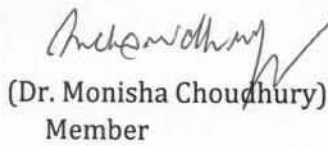 (Dr. Monisha Choudhury)
Member